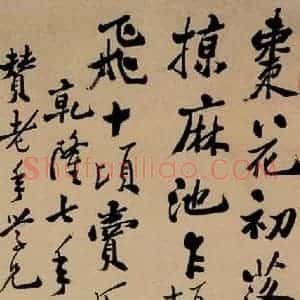 棗花初落
掠麻池乍
飛十頃賣
乾隆七年
贊老年學兄